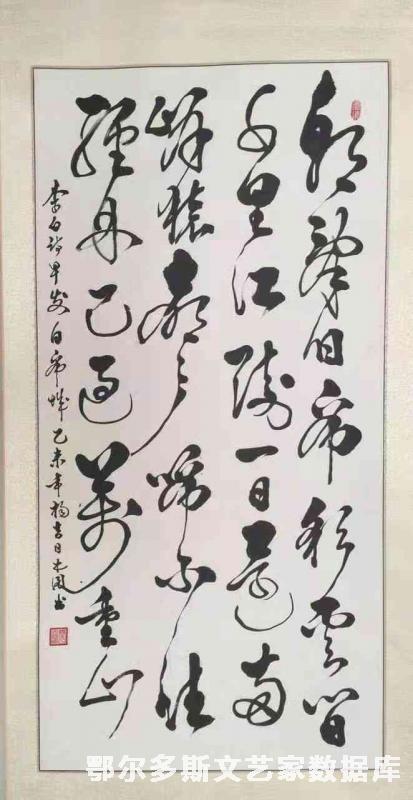 朝辞白帝彩雲间
千里江陵一日還两
岸猿声啼不住
轻舟已过萬重山
李白诗早发白帝城乙未年杨吉日木图书
鄂尔多斯文艺家数据库